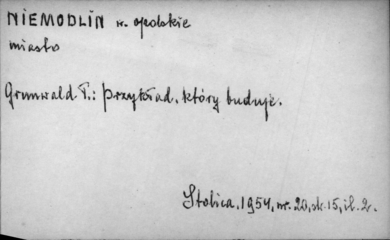 NIEMODLIN w. opolskie
miasto
Grunwald. T.: Przykład, który buduje.
Stolica, 1954, nr. 20, sk. 15, il. 2.